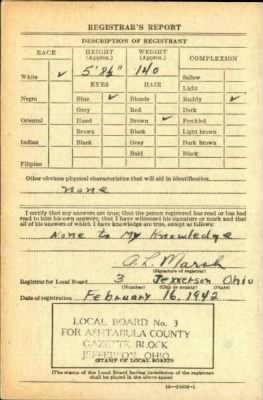 REGISTRAR'S REPORT
DESCRIPTION OF REGISTRANT
RACE HEIGHT (Approx.) WEIGHT (Approx.) COMPLEXION
White ✓ 5' 8½" 140 Sallow
EYES HAIR Light
Negro Blue ✓ Blonde Ruddy ✓
Gray Red Dark
Oriental Hazel Brown ✓ Freckled
Brown Black Light brown
Indian Black Gray Dark brown
Bald Black
Filipino
Other obvious physical characteristics that will aid in identification.
none
I certify that my answers are true; that the person registered has read or has had
read to him his own answers; that I have witnessed his signature or mark and that
all of his answers of which I have knowledge are true, except as follows:
None to My Knowledge
A. L. Marsh
(Signature of registrar)
Registrar for Local Board 3 Jefferson Ohio
(Number) (City or county) (State)
Date of registration February 16, 1942
LOCAL BOARD No. 3
FOR ASHTABULA COUNTY
GAZETTE BLOCK
JEFFERSON, OHIO
(STAMP OF LOCAL BOARD)
(The stamp of the Local Board having jurisdiction of the registrant
shall be placed in the above space.)